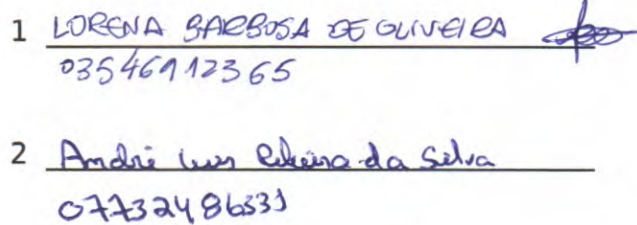 1 LORENA BARBOSA DE OLIVEIRA
03546912365
2 André Luis Ribeiro da Silva
07732486331